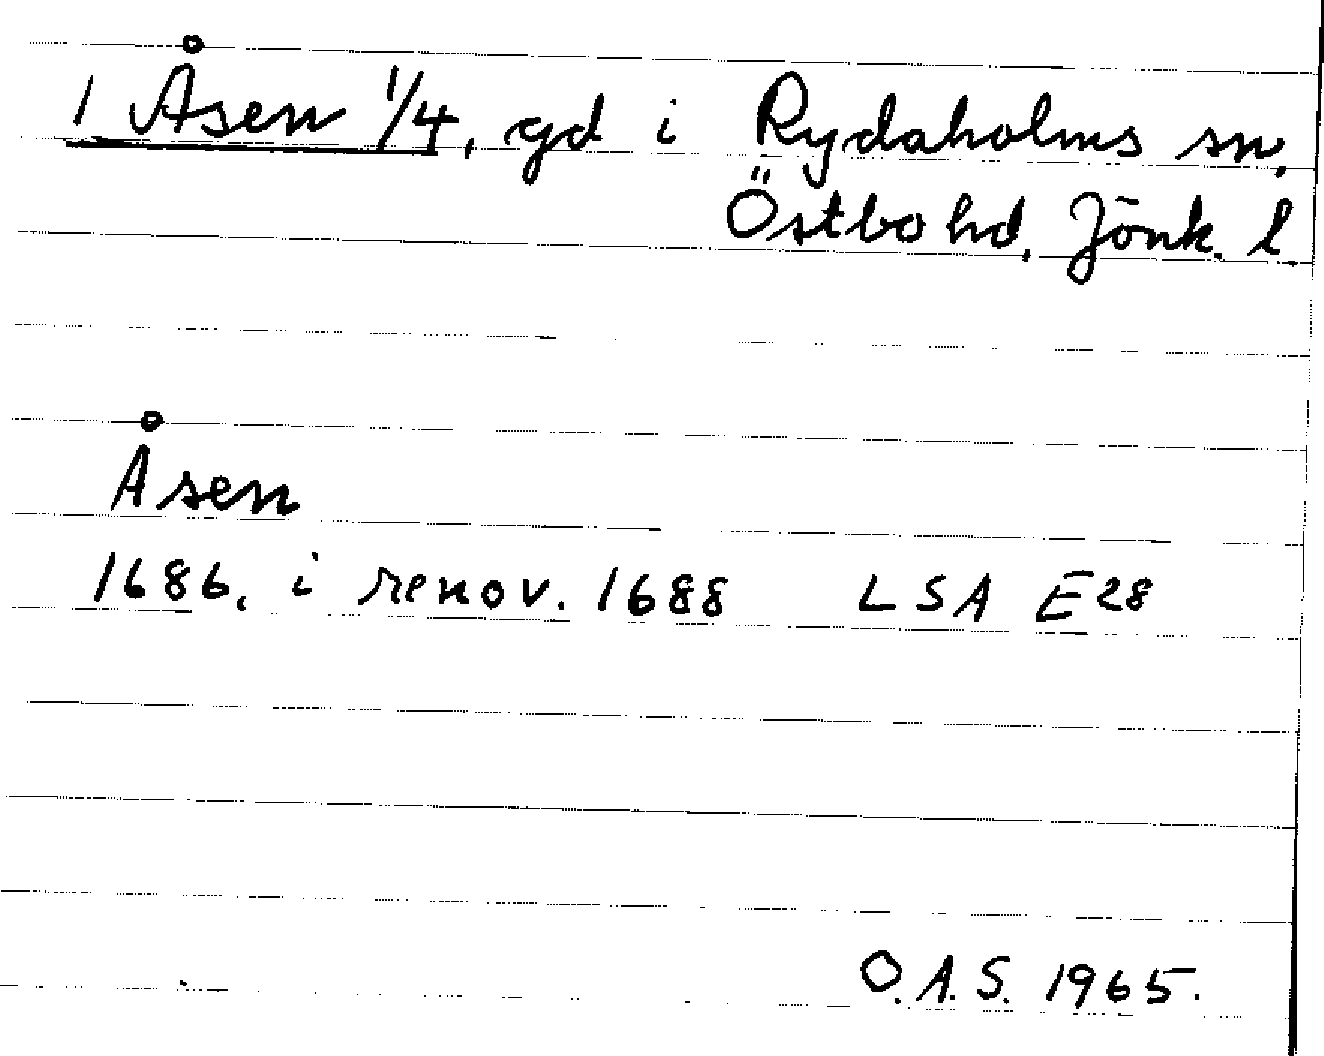 1 Åsen 1/4, gd i Rydaholms sn.
Östbo hd. Jönk. l.
Åsen
1686. i renov. 1688 LSA E28
O.A.S. 1965.